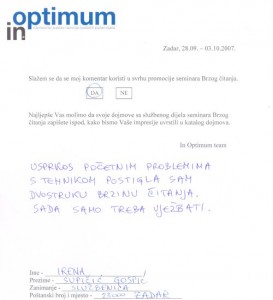 in optimum
Zadar, 28.09. – 03.10.2007.
Slažem se da se moj komentar koristi u svrhu promocije seminara Brzog čitanja.
DA NE
Najljepše Vas molimo da svoje dojmove sa službenog dijela seminara Brzog
čitanja zapišete ispod, kako bismo Vaše impresije uvrstili u katalog dojmova.
In Optimum team
USPRKOS POČETNIM PROBLEMIMA
S TEHNIKOM POSTIGLA SAM
DVOSTRUKU BRZINU ČITANJA.
SADA SAMO TREBA VJEŽBATI.
Ime: IRENA
Prezime - SUPIČIĆ GOSPIĆ
Zanimanje - SLUŽBENICA
Poštanski broj i mjesto - 23000 ZADAR